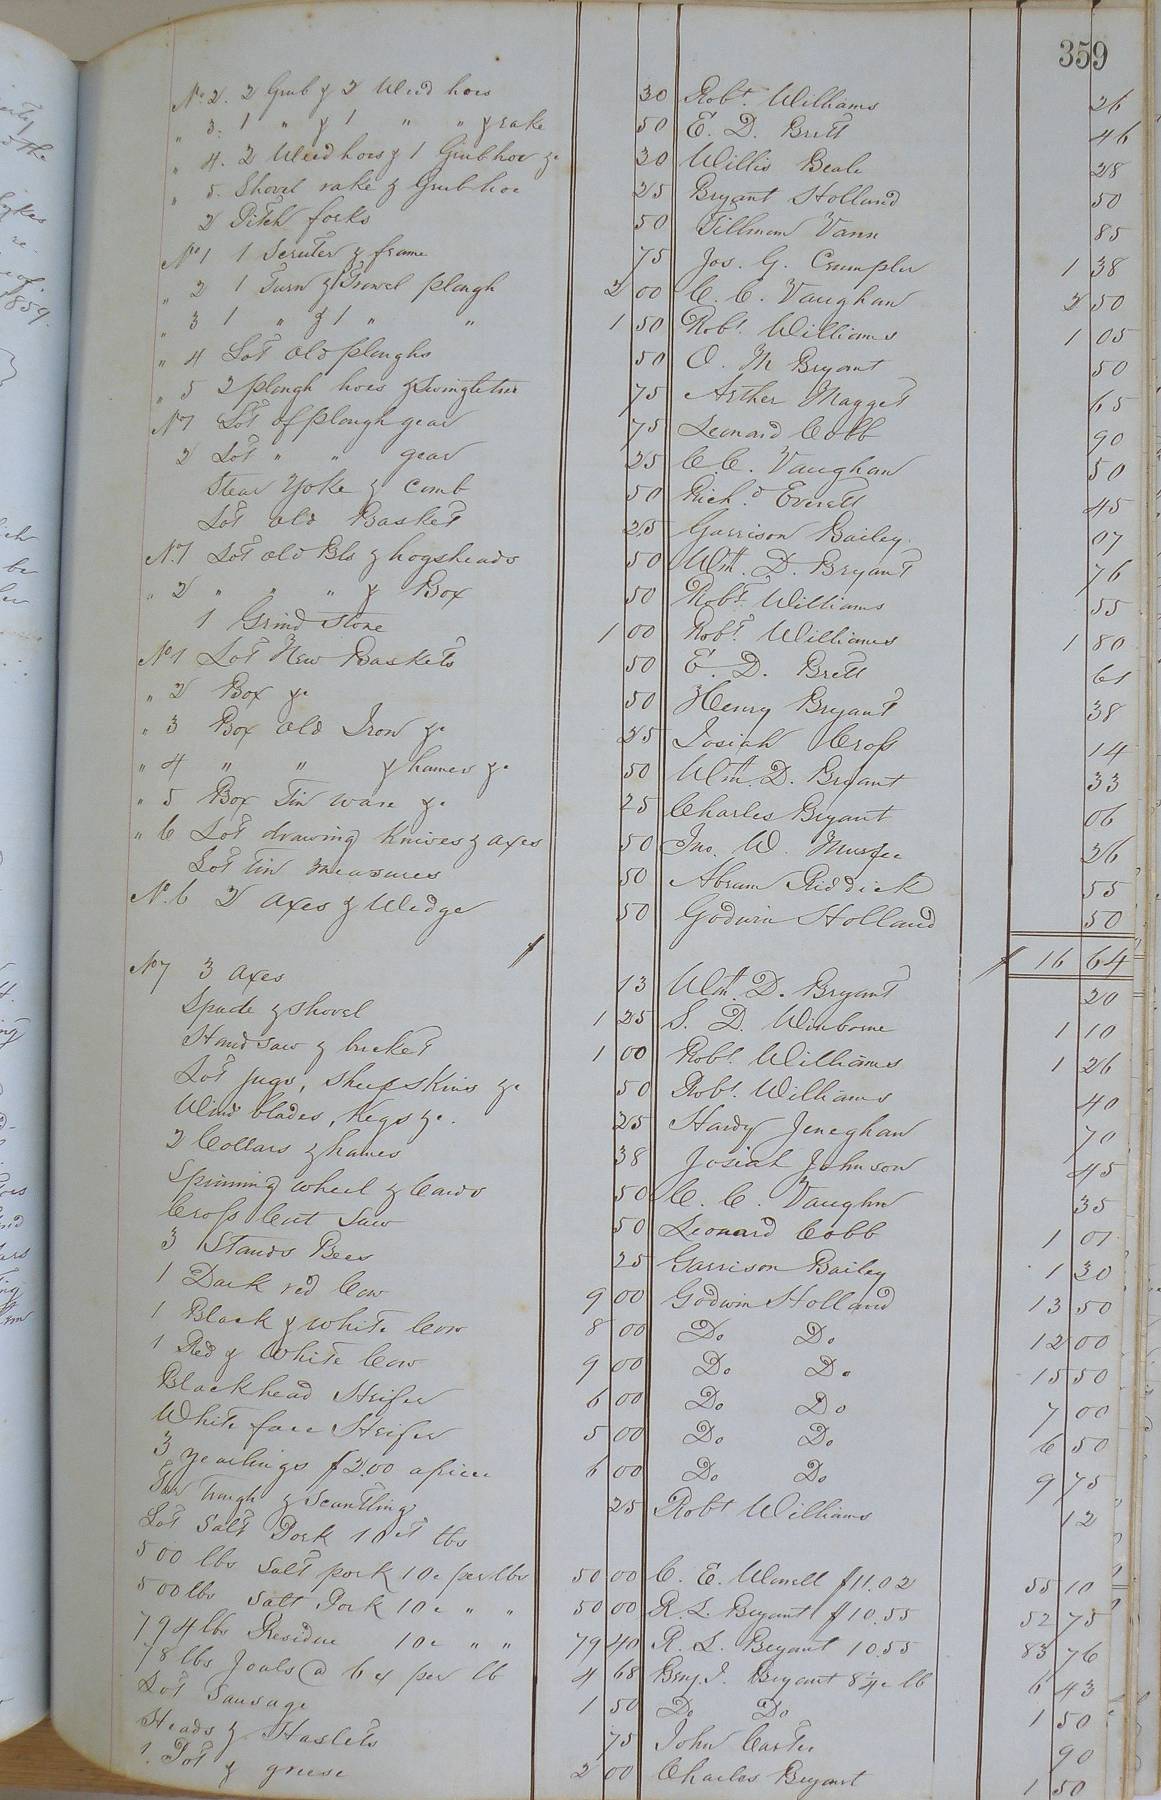 359
No 2. 2 Grub & 2 Weed hoes 30 Robt. Williams 26
" 3. 1 " & 1 " " & rake 50 E. D. Britt 46
" 4. 2 Weed hoes & 1 Grub hoe &c 30 Willis Beale 28
" 5. Shovel rake & Grub hoe 25 Bryant Holland 50
2 Pitch forks 50 Tillman Vann 85
No 1 1 & frame 75 Jos. G. Crumpler 1 38
" 2 1 Turn & Trowel plough 2 00 C. C. Vaughan 2 50
" 3 1 " & 1 " " 1 50 Robt. Williams 1 05
" 4 Lot old ploughs 50 O. M Bryant 50
" 5 2 plough hoes & Swingletree 75 Arther Magget 65
No 1 Lot of plough gear 75 Leonard Cobb 90
2 Lot " " gear 25 C. C. Vaughan 50
Stear Yoke & comb 50 Richd. Everett 45
Lot old Basket 25 Garrison Bailey. 07
No. 1 Lot old Bls & hogsheads 50 Wm. D. Bryant 76
" 2 " " " & Box 50 Robt. Williams 55
1 Grind stone 1 00 Robt. Williams 1 80
No 1 Lot New Baskets 50 E. D. Brett 61
" 2 Box &c 50 Henry Bryant 38
" 3 Box old Iron &c 25 Josiah Cross 14
" 4 " " & hames &c 50 Wm. D. Bryant 33
" 5 Box Tin ware &c 25 Charles Bryant 06
" 6 Lot drawing Knives & axes 50 Jno. W. 26
Lot Tin measures 50 Abram Riddick 55
No. 6 2 axes & Wedge 50 Godwin Holland 50
$ $ 16 64
No 7 3 axes 13 Wm. D. Bryant 20
Spade & shovel 1 25 S. D. Winborne 1 10
Hand saw & bucket 1 00 Robt. Williams 1 26
Lot jugs, Sheep skins &c 50 Robt. Williams 40
Wind blades, Kegs &c. 25 Hardy Jeneghan 70
2 Collars & hames 38 Josiah Johnson 45
Spinning wheel & Cards 50 C. C. Vaughn 35
Cross Cut Saw 50 Leonard Cobb 1 01
3 Stands Bees 25 Garrison Bailey 1 30
1 Dark red Cow 9 00 Godwin Holland 13 50
1 Black & white Cow 8 00 Do Do 12 00
1 Red & White Cow 9 00 Do Do 15 50
Blackhead Heifer 6 00 Do Do 7 00
White face Heifer 5 00 Do Do 6 50
3 yearlings $2.00 apiece 6 00 Do Do 9 75
trough & Scantling 25 Robt Williams 12
Lot Salt Pork 10 ct lbs
500 lbs Salt pork 10c per lbs 50 00 C. E. Worrell $11.02 55 10
500 lbs Salt Pork 10c " " 50 00 R. L. Bryant $10.55 52 75
794 lbs Residue 10c " " 79 40 R. L. Bryant 10.55 83 76
78 lbs Joals @ 6c per lb 4 68 Benj. I. Bryant 8 1/4c lb 6 43
Lot Sausage 1 50 Do Do 1 50
Heads & Haslets 75 John Carter 90
1. Pot & grease 2 00 Charles Bryant 1 50